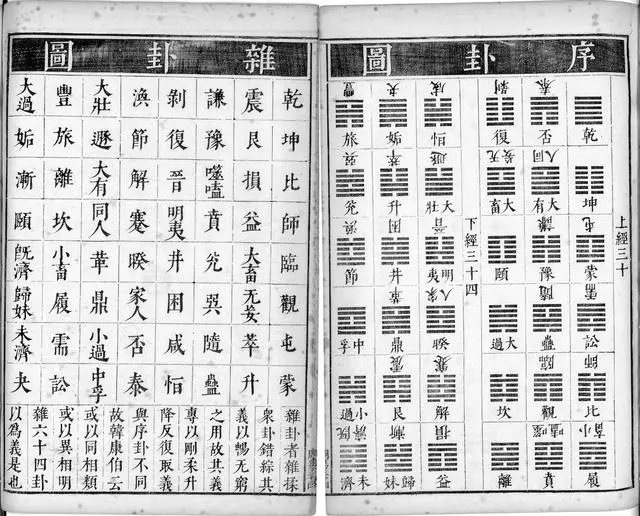 序卦圖
上經三十
乾 坤 屯 蒙 需 訟 師 比 小畜 履
泰 否 同人 大有 謙 豫 隨 蠱 臨 觀 噬嗑 賁
剝 復 无妄 大畜 頤 大過 坎 離
下經三十四
咸 恒 遯 大壯 晉 明夷 家人 睽 蹇 解 損 益
夬 姤 萃 升 困 井 革 鼎 震 艮 漸 歸妹
豐 旅 巽 兌 渙 節 中孚 小過 既濟 未濟
雜卦圖
乾 坤 比 師 臨 觀 屯 蒙
震 艮 損 益 大畜 无妄 萃 升
謙 豫 噬嗑 賁 兌 巽 隨 蠱
剝 復 晉 明夷 井 困 咸 恒
渙 節 解 蹇 睽 家人 否 泰
大壯 遯 大有 同人 革 鼎 小過 中孚
豐 旅 離 坎 小畜 履 需 訟
大過 姤 漸 頤 既濟 歸妹 未濟 夬
雜卦者雜揉
衆卦錯綜其
義以暢无窮
之用故其義
專以剛柔升
降反復取義
與序卦不同
故韓康伯云
或以同相類
或以異相明
雜六十四卦
以為義是也